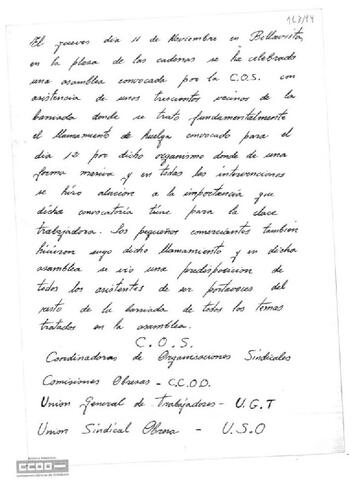 163/14
El jueves dia 11 de Noviembre en Bellavista,
en la plaza de las cadenas se ha celebrado
una asamblea convocada por la C.O.S. con
asistencia de unos trescientos vecinos de la
barriada donde se trato fundamentalmente
el llamamiento de huelga convocado para el
dia 12 por dicho organismo donde de una
forma masiva y en todas las intervenciones
se hizo alusion a la importancia que
dicha convocatoria tiene para la clase
trabajadora. Los pequeños comerciantes tambien
hicieron suyo dicho llamamiento y en dicha
asamblea se vio una predisposicion de
todos los asistentes de ser portavoces del
resto de la barriada de todos los temas
tratados en la asamblea.
C.O.S.
Coordinadoras de Organizaciones Sindicales
Comisiones Obreras - CC.OO.
Union General de Trabajadores - U.G.T
Union Sindical Obrera - U.S.O
CCOO